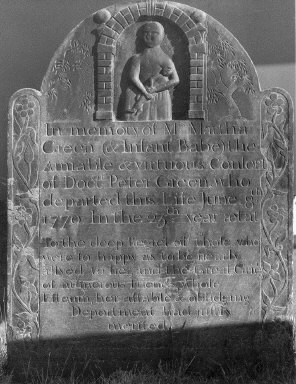 In memory of Mrs Martha
Green & Infant Babe, the
Amiable & virtuous Consort
of Doct Peter Green who
departed this Life June 8th
1770 In the 25th year
To the deep Regret of those who
were so happy as to be nearly
allied to her and the Great
of numerous Friends whose
Esteem her affable & obliging
Deportment had justly
merited